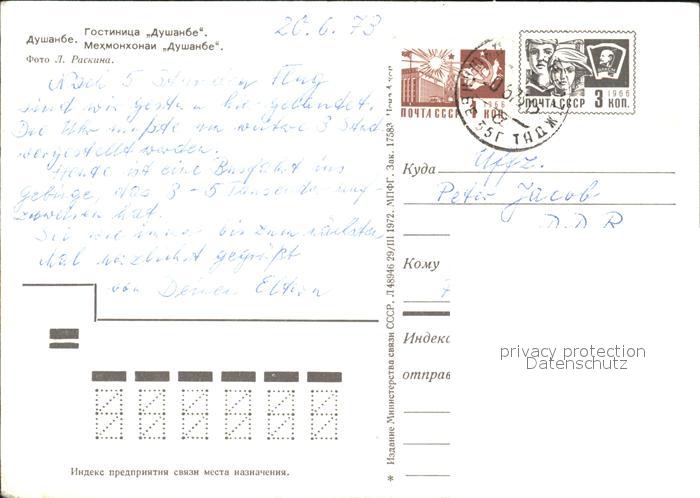 20.6.73
Душанбе. Гостиница „Душанбе“.
Меҳмонхонаи „Душанбе“.
Фото Л. Раскина.
Nach 5 Stunden Flug
sind wir gestern hier gelandet.
Die Uhr mußte um weitere 3 Stud
vorgestellt werden.
Heute ist eine Busfahrt ins
Gebirge, das 3-5 Tausender auf-
zuweisen hat.
Sei wie immer bis zum nächsten
Mal herzlichst gegrüßt
von Deinen Eltern
Индекс предприятия связи места назначения.
* Издание Министерства связи СССР. Л48946 29/III 1972. МПФГ. Зак. 17583. Цена 4 коп.
ПОЧТА СССР 1 КОП. 1966
ПОЧТА СССР 3 КОП. 1966
ТАДЖ
Куда
Uffz.
Peter Jacob
D.D.R
Кому
Индекс
отправ
privacy protection
Datenschutz